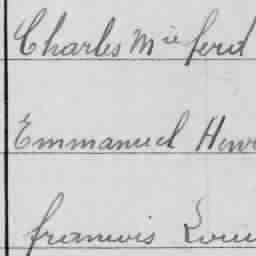 Charles Mie ferd
Emmanuel Henr
francois Loui